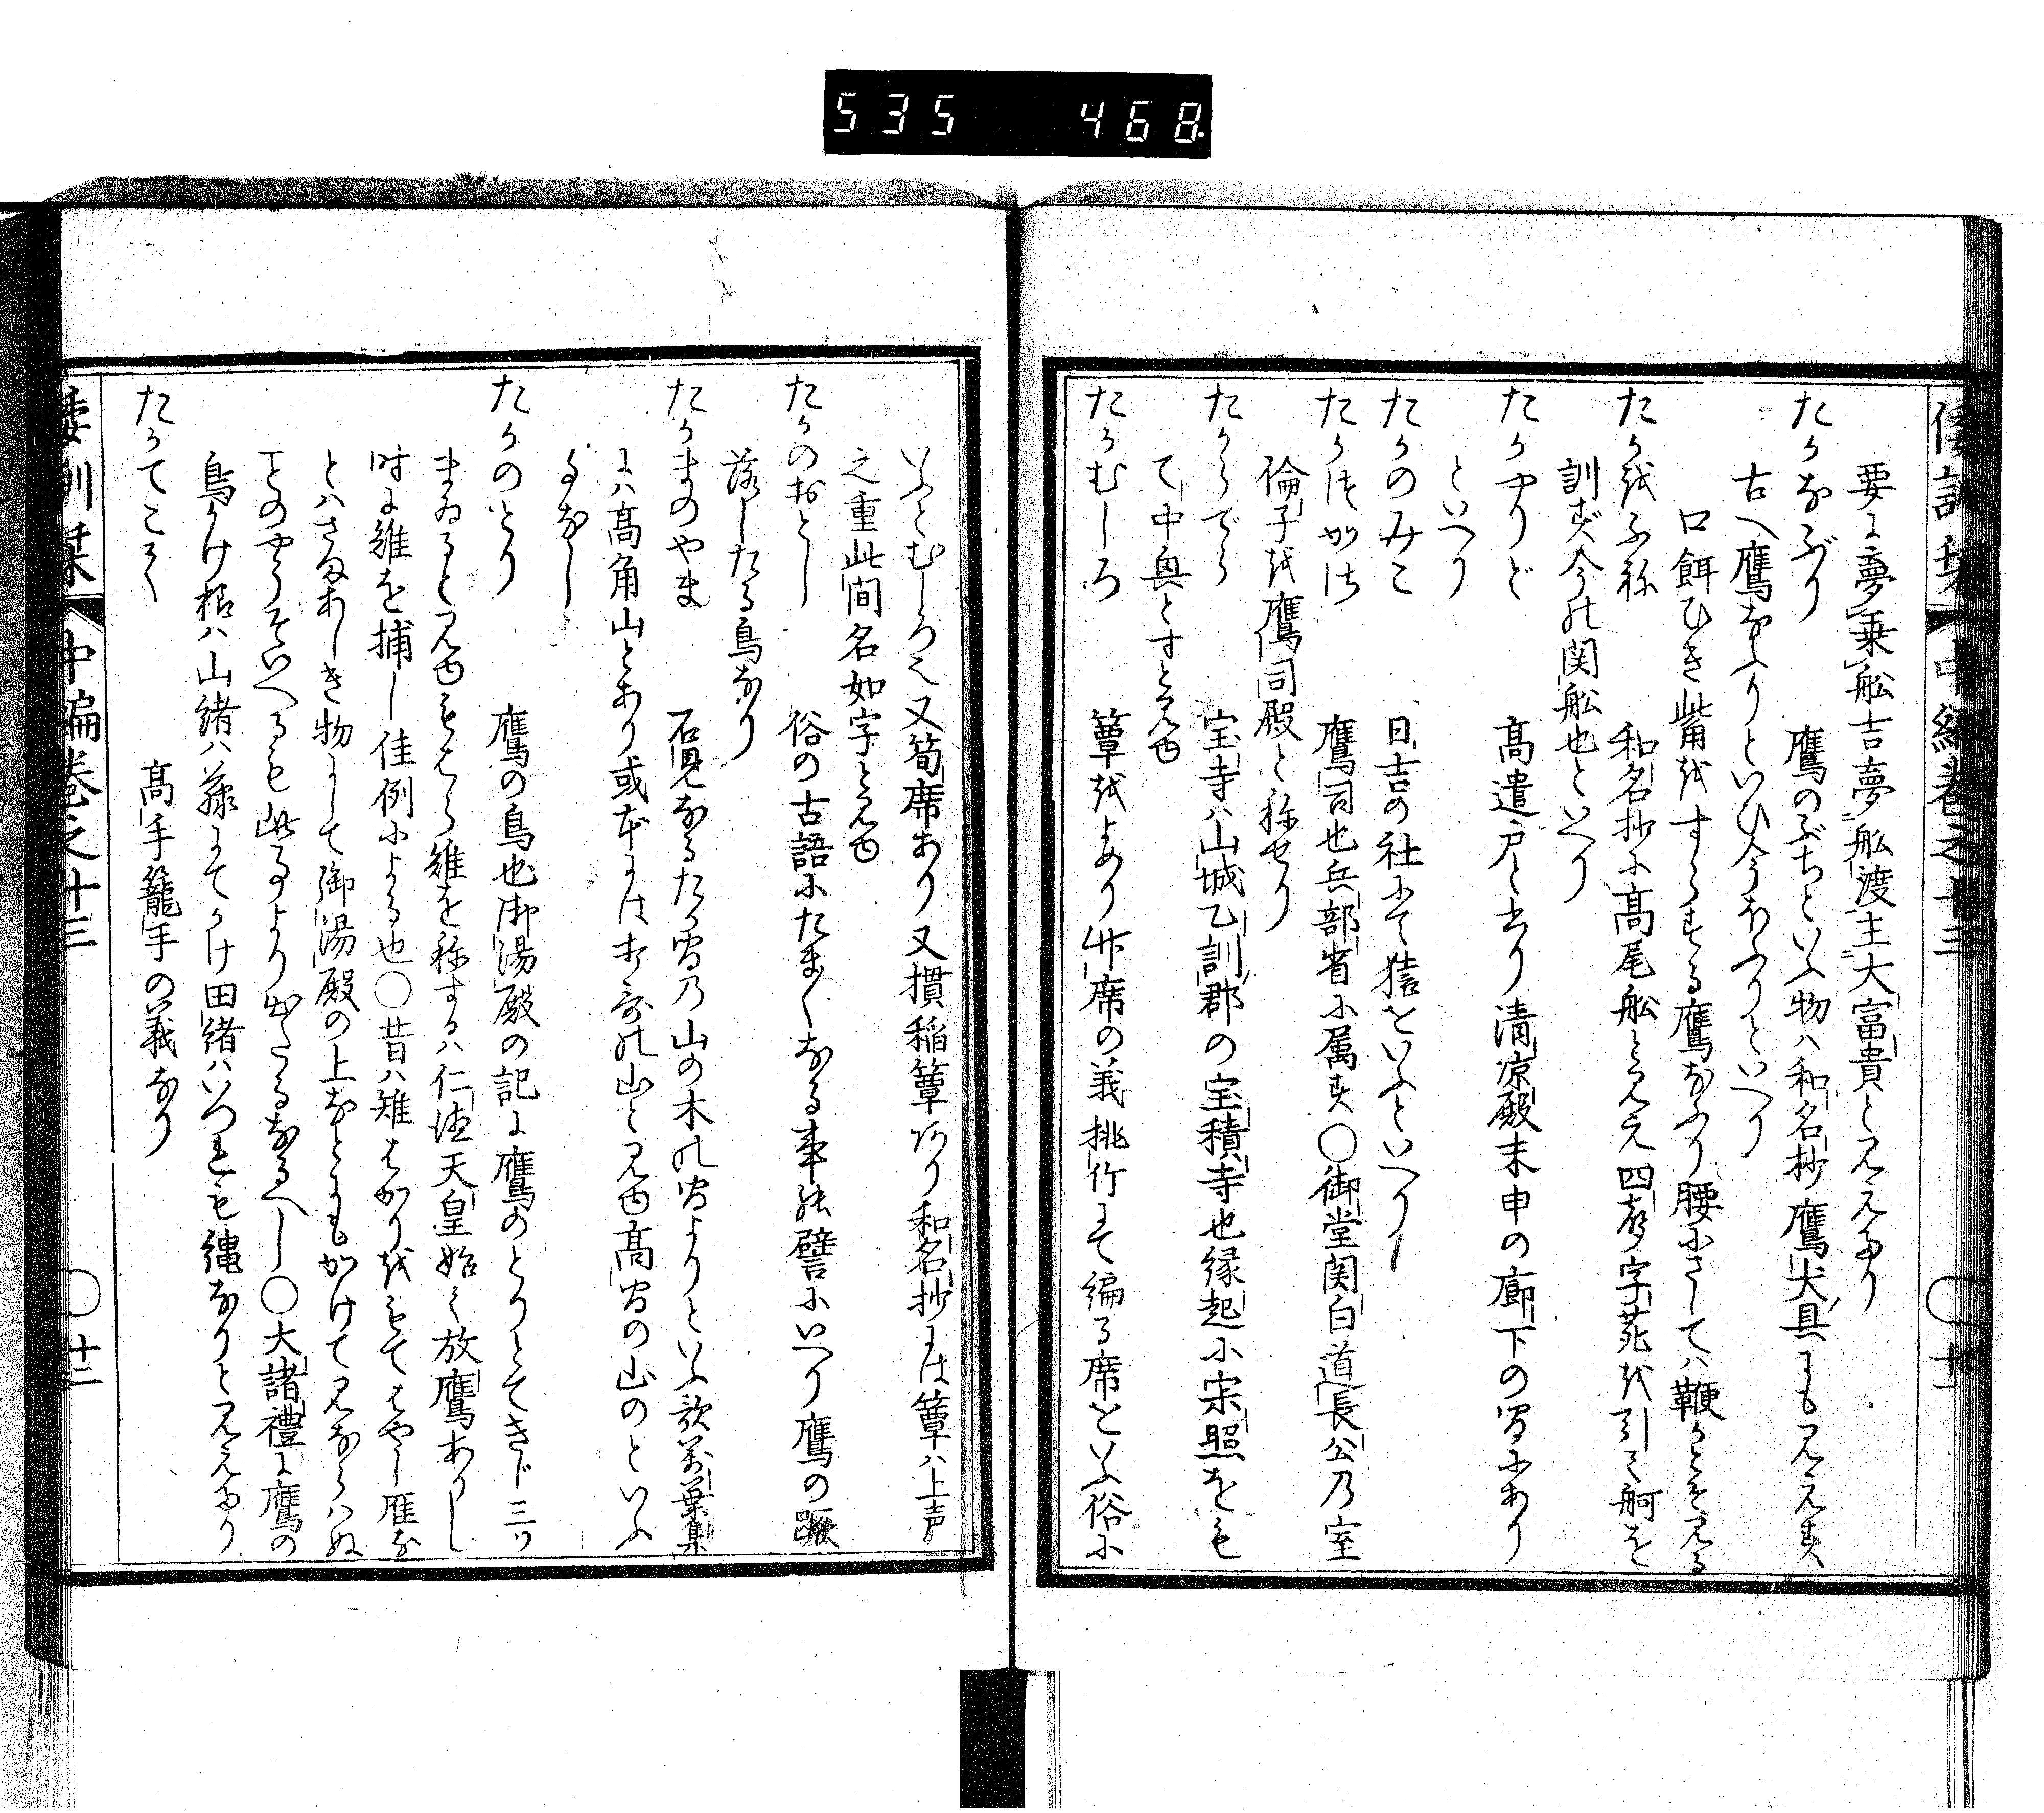 535 468
倭訓栞 中編巻之十三 〇 廿二
要に夢乗舩吉夢舩渡主大富貴と見えたり
たかなぶり 鷹のぶちといふ物ハ和名抄鷹犬具にも見えす
古へ鷹なふりといひ今なふりといへり
口餌ひき觜をすらする鷹なふり腰にさしてハ鞭かとそ見る
たかをふね 和名抄に高尾舩と見え四声字苑を引て舸を
訓ず今の関舩也といへり
たかやりど 高遣戸と書り清凉殿末申の廊下の間にあり
といへり
たかのみこ 日吉の社にて猿をいふといへり
たかつかさ 鷹司也兵部省に属す〇御堂関白道長公乃室
倫子を鷹司殿と称せり
たからでら 宝寺ハ山城乙訓郡の宝積寺也縁起に宗照をも
て中興とすと見ゆ
たかむしろ 簟をよめり竹席の義桃竹にて編る席をいふ俗に
いふとむしろ之又筍席あり又摜稲簟あり和名抄には簟ハ上声
之重此間名如字と見ゆ
たかのおとし 俗の古語にたまくなる事の譬にいへり鷹の蹶
落したる鳥なり
たかまのやま 石見なるたか間乃山の木の間よりといふ歌万葉集
にハ高角山とあり或本にはうち歌の山と見ゆ高間の山のといふ
よなし
たかのとり 鷹の鳥也御湯殿の記に鷹のとりとてきじ三ツ
まゐると見ゆもはら雉を称するハ仁徳天皇始て放鷹ありし
時に雉を捕し佳例による也〇昔ハ雉はかりをもてはやし雁な
とハさまあしき物にして御湯殿の上なとにもかけて見ならハぬ
との やうにいへるも此事より出たるなるへし〇大諸禮に鷹の
鳥かけ柏ハ山緒ハ藤にてかけ田緒ハいつれも縄なりと見えたり
たかてこて 高手籠手の義なり
倭訓栞 中編巻之十三 〇 廿二